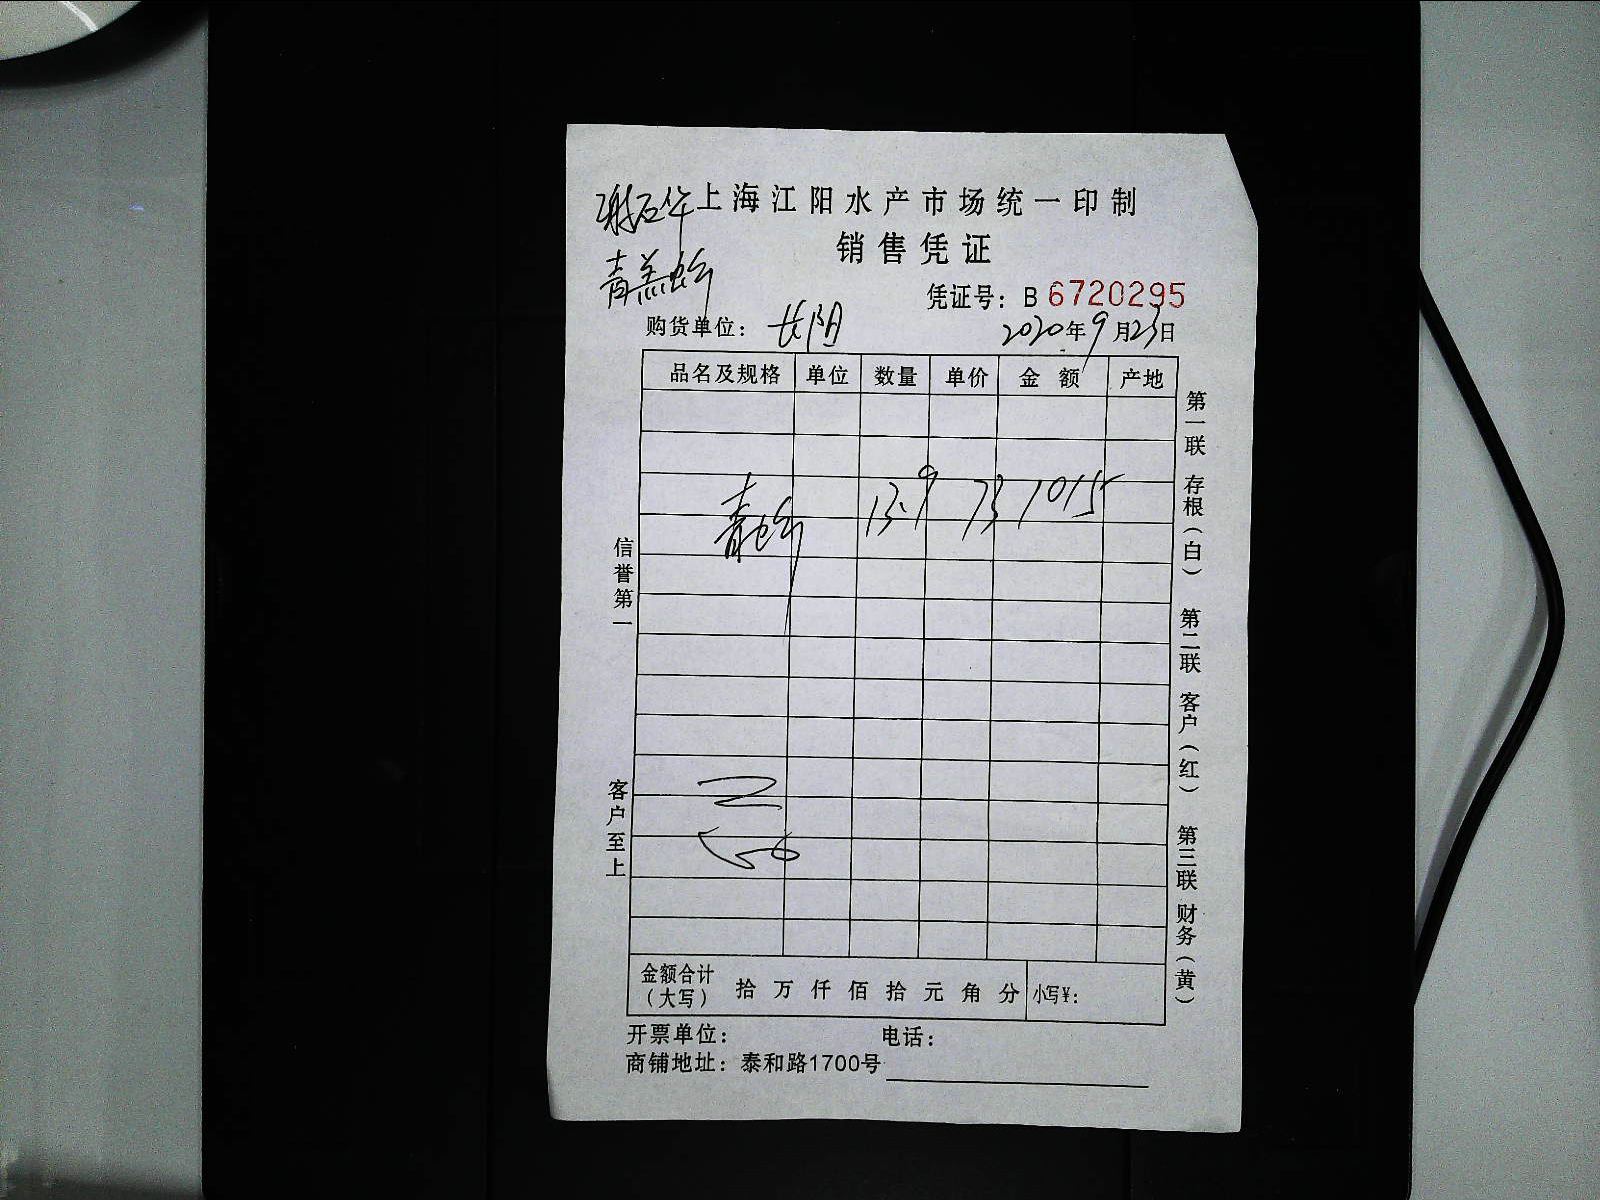 上海江阳水产市场统一印制
销售凭证
凭证号：B 6720295
购货单位：长阳 2020年9月23日
品名及规格 单位 数量 单价 金额 产地
13.9 73 1015
金额合计（大写） 拾 万 仟 佰 拾 元 角 分 小写¥：
开票单位： 电话：
商铺地址：泰和路1700号
信誉第一
客户至上
第一联 存根（白） 第二联 客户（红） 第三联 财务（黄）